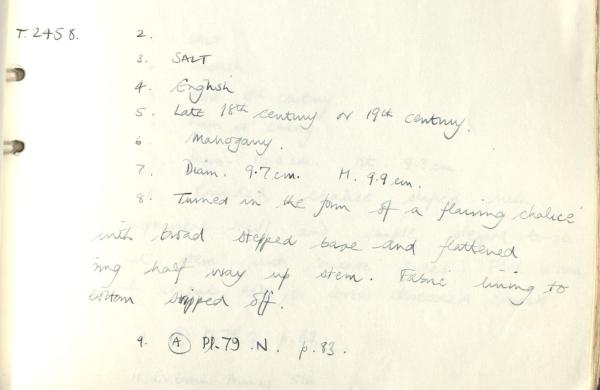 T.2458. 2.
3. SALT
4. English
5. Late 18th century or 19th century.
6. Mahogany.
7. Diam. 9.7cm. H. 9.9cm.
8. Turned in the form of a flaring chalice
with broad stepped base and flattened
ring half way up stem. Fabric lining to
bottom stripped off.
9. (A) Pl.79.N. p.83.